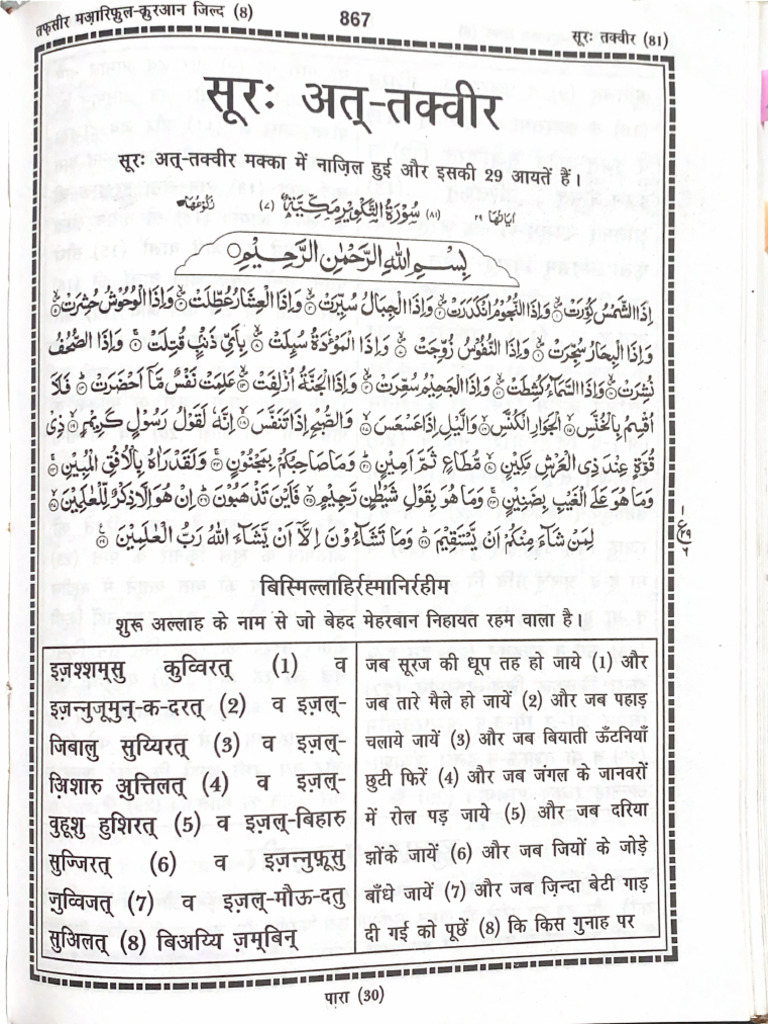 तफ़सीर मआ़रिफ़ुल-क़ुरआन जिल्द (8)
867
सूरः तक्वीर (81)
सूरः अत्-तक्वीर
सूरः अत्-तक्वीर मक्का में नाज़िल हुई और इसकी 29 आयतें हैं।
اٰیَاتُهَا ۲۹ (۸۱) سُوْرَةُ التَّكْوِيْرِ مَكِّيَّةٌ (۷) رُكُوْعُهَا
بِسْمِ اللهِ الرَّحْمٰنِ الرَّحِيْمِ
اِذَا الشَّمْسُ كُوِّرَتْ ۙ وَاِذَا النُّجُوْمُ انْكَدَرَتْ ۙ وَاِذَا الْجِبَالُ سُيِّرَتْ ۙ وَاِذَا الْعِشَارُ عُطِّلَتْ ۙ وَاِذَا الْوُحُوْشُ حُشِرَتْ ۙ
وَاِذَا الْبِحَارُ سُجِّرَتْ ۙ وَاِذَا النُّفُوْسُ زُوِّجَتْ ۙ وَاِذَا الْمَوْءٗدَةُ سُىِٕلَتْ ۙ بِاَيِّ ذَنْۢبٍ قُتِلَتْ ۚ وَاِذَا الصُّحُفُ
نُشِرَتْ ۙ وَاِذَا السَّمَآءُ كُشِطَتْ ۙ وَاِذَا الْجَحِيْمُ سُعِّرَتْ ۙ وَاِذَا الْجَنَّةُ اُزْلِفَتْ ۙ عَلِمَتْ نَفْسٌ مَّآ اَحْضَرَتْ ؕ فَلَآ
اُقْسِمُ بِالْخُنَّسِ ۙ الْجَوَارِ الْكُنَّسِ ۙ وَالَّيْلِ اِذَا عَسْعَسَ ۙ وَالصُّبْحِ اِذَا تَنَفَّسَ ۙ اِنَّهٗ لَقَوْلُ رَسُوْلٍ كَرِيْمٍ ۙ ذِيْ
قُوَّةٍ عِنْدَ ذِي الْعَرْشِ مَكِيْنٍ ۙ مُّطَاعٍ ثَمَّ اَمِيْنٍ ؕ وَمَا صَاحِبُكُمْ بِمَجْنُوْنٍ ۚ وَلَقَدْ رَاٰهُ بِالْاُفُقِ الْمُبِيْنِ ۚ
وَمَا هُوَ عَلَى الْغَيْبِ بِضَنِيْنٍ ۚ وَمَا هُوَ بِقَوْلِ شَيْطٰنٍ رَّجِيْمٍ ۙ فَاَيْنَ تَذْهَبُوْنَ ؕ اِنْ هُوَ اِلَّا ذِكْرٌ لِّلْعٰلَمِيْنَ ۙ
لِمَنْ شَآءَ مِنْكُمْ اَنْ يَّسْتَقِيْمَ ؕ وَمَا تَشَآءُوْنَ اِلَّآ اَنْ يَّشَآءَ اللهُ رَبُّ الْعٰلَمِيْنَ
बिस्मिल्लाहिर्रह्मानिर्रहीम
शुरू अल्लाह के नाम से जो बेहद मेहरबान निहायत रहम वाला है।
इज़श्शम्सु कुव्विरत् (1) व
इज़न्नुजूमुन्-क-दरत् (2) व इज़ल्-
जिबालु सुय्यिरत् (3) व इज़ल्-
अ़िशारु अ़ुत्तिलत् (4) व इज़ल्-
वुहूशु हुशिरत् (5) व इज़ल्-बिहारु
सुज्जिरत् (6) व इज़न्नुफ़ूसु
ज़ुव्विजत् (7) व इज़ल्-मौऊ-दतु
सुअिलत् (8) बिअय्यि ज़म्बिन्
जब सूरज की धूप तह हो जाये (1) और
जब तारे मैले हो जायें (2) और जब पहाड़
चलाये जायें (3) और जब बियाती ऊँटनियाँ
छुटी फिरें (4) और जब जंगल के जानवरों
में रोल पड़ जाये (5) और जब दरिया
झोंके जायें (6) और जब जियों के जोड़े
बाँधे जायें (7) और जब ज़िन्दा बेटी गाड़
दी गई को पूछें (8) कि किस गुनाह पर
पारा (30)